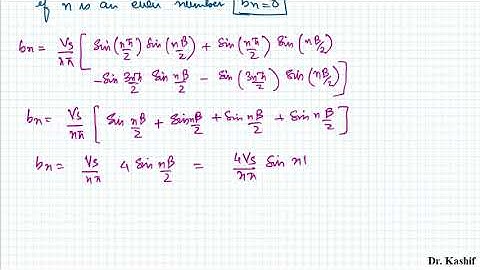 if n is an even number bn=0
bn = Vs/nπ [ Sin(nπ/2) Sin(nβ/2) + Sin(nπ/2) Sin(nβ/2)
-Sin 3nπ/2 Sin nβ/2 - Sin(3nπ/2) Sin(nβ/2) ]
bn = Vs/nπ [ Sin nβ/2 + Sin nβ/2 + Sin nβ/2 + Sin nβ/2 ]
bn = Vs/nπ 4 Sin nβ/2 = 4Vs/nπ Sin n
Dr. Kashif